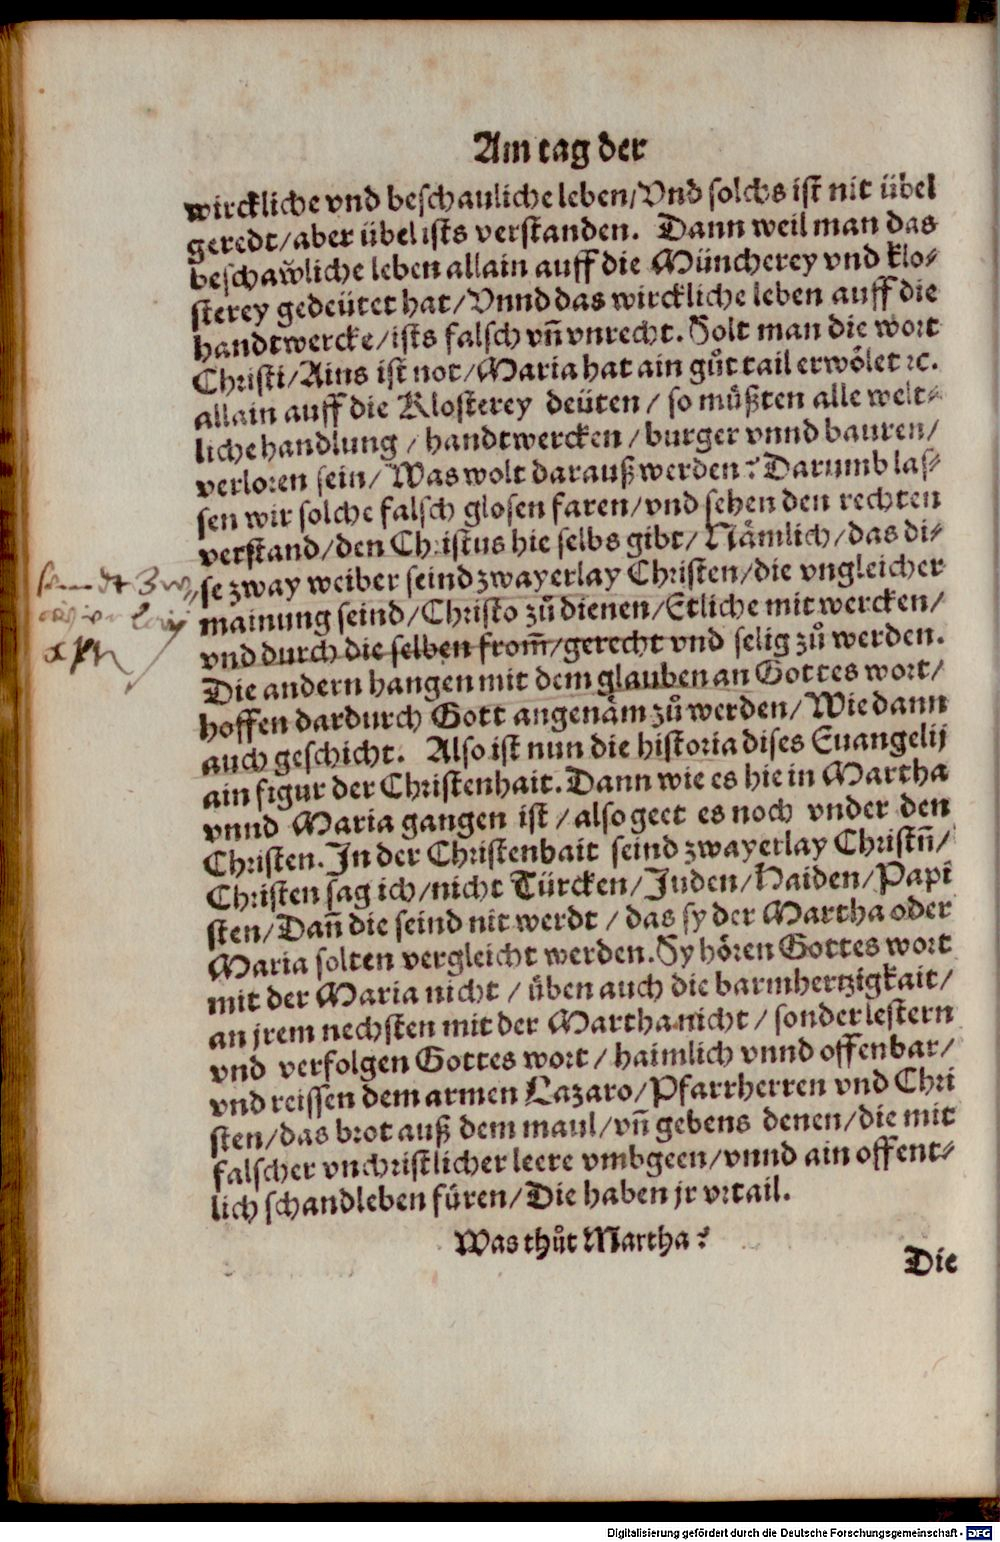 Am tag der
wirckliche vnd beschauliche leben/Vnd solchs ist nit übel
geredt/aber übel ists verstanden. Dann weil man das
beschawliche leben allain auff die Müncherey vnd klo-
sterey gedeütet hat/Vnnd das wirckliche leben auff die
handtwercke/ists falsch vn̄ vnrecht. Solt man die wort
Christi/Ains ist not/Maria hat ain gůt tail erwölet ꝛc.
allain auff die Klosterey deüten/so müßten alle welt-
liche handlung/handtwercken/burger vnnd bauren/
verloren sein/Was wolt darauß werden? Darumb las-
sen wir solche falsch glosen faren/vnd sehen den rechten
verstand/den Christus hie selbs gibt/Nämlich/das di-
se zway weiber seind zwayerlay Christen/die vngleicher
mainung seind/Christo zů dienen/Etliche mit wercken/
vnd durch die selben from̄/gerecht vnd selig zů werden.
Die andern hangen mit dem glauben an Gottes wort/
hoffen dardurch Gott angenäm zů werden/Wie dann
auch geschicht. Also ist nun die historia dises Euangelij
ain figur der Christenhait. Dann wie es hie in Martha
vnnd Maria gangen ist/also geet es noch vnder den
Christen. In der Christenhait seind zwayerlay Christn̄/
Christen sag ich/nicht Türcken/Juden/Haiden/Papi
sten/Dan̄ die seind nit werdt/das sy der Martha oder
Maria solten vergleicht werden. Sy hören Gottes wort
mit der Maria nicht/üben auch die barmhertzigkait/
an jrem nechsten mit der Martha nicht/sonder lestern
vnd verfolgen Gottes wort/haimlich vnnd offenbar/
vnd reissen dem armen Lazaro/Pfarrherren vnd Chri
sten/das brot auß dem maul/vn̄ gebens denen/die mit
falscher vnchristlicher leere vmbgeen/vnnd ain offent-
lich schandleben füren/Die haben jr vrtail.
Was thůt Martha?
Die
Digitalisierung gefördert durch die Deutsche Forschungsgemeinschaft - DFG